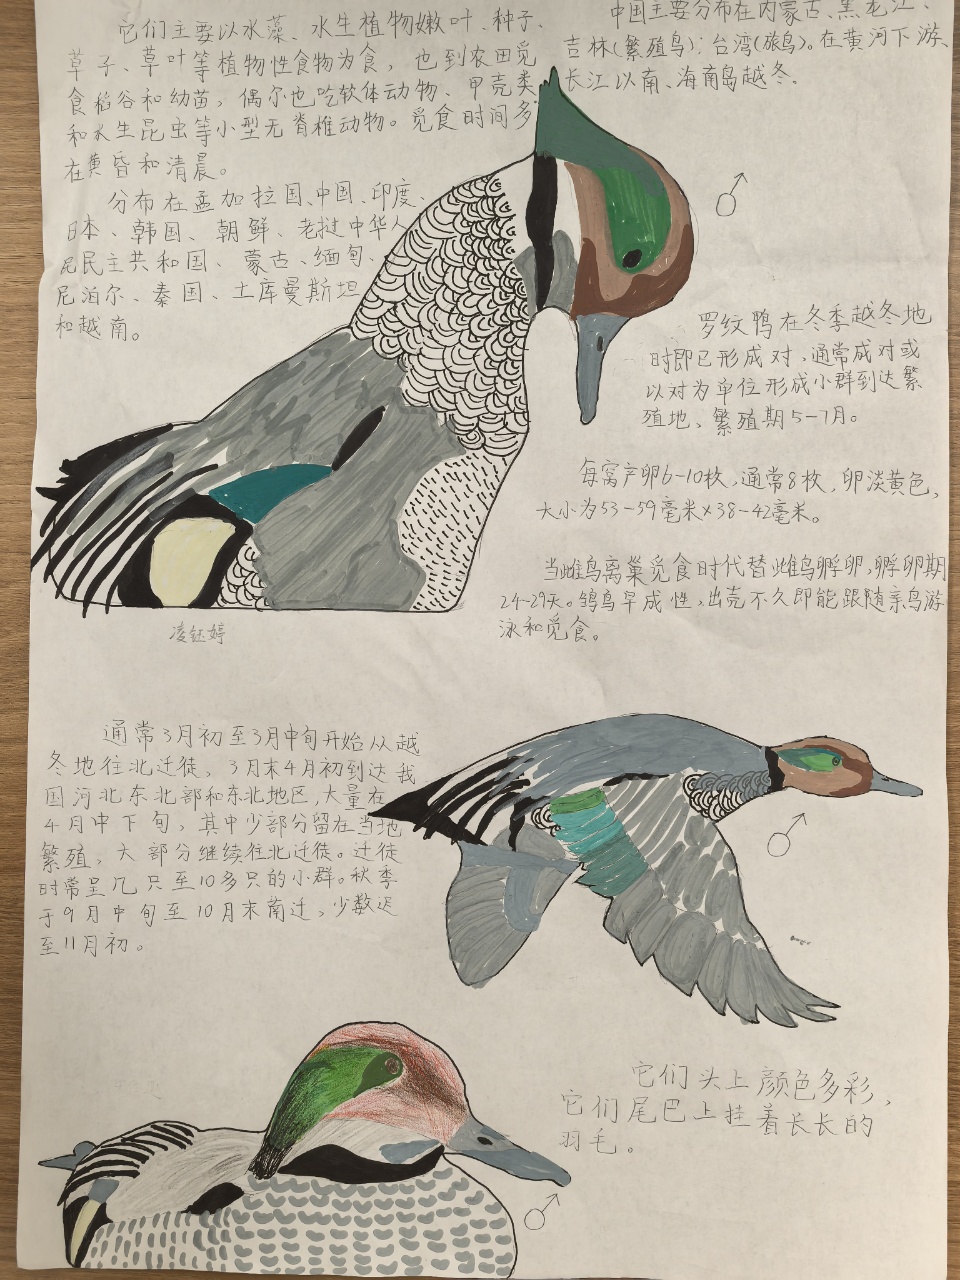 它们主要以水藻、水生植物嫩叶、种子、
草子、草叶等植物性食物为食，也到农田觅
食稻谷和幼苗，偶尔也吃软体动物、甲壳类
和水生昆虫等小型无脊椎动物。觅食时间多
在黄昏和清晨。
分布在孟加拉国、中国、印度、
日本、韩国、朝鲜、老挝中华人
民民主共和国、蒙古、缅甸、
尼泊尔、泰国、土库曼斯坦
和越南。
中国主要分布在内蒙古、黑龙江、
吉林(繁殖鸟)；台湾(旅鸟)。在黄河下游、
长江以南、海南岛越冬。
♂
罗纹鸭在冬季越冬地
时即已形成对，通常成对或
以对为单位形成小群到达繁
殖地、繁殖期5-7月。
每窝产卵6-10枚，通常8枚，卵淡黄色，
大小为53-59毫米×38-42毫米。
当雌鸟离巢觅食时代替雌鸟孵卵，孵卵期
24-29天。雏鸟早成性，出壳不久即能跟随亲鸟游
泳和觅食。
凌钰婷
通常3月初至3月中旬开始从越
冬地往北迁徙，3月末4月初到达我
国河北东北部和东北地区，大量在
4月中下旬，其中少部分留在当地
繁殖，大部分继续往北迁徙。迁徙
时常呈几只至10多只的小群。秋季
于9月中旬至10月末南迁，少数迟
至11月初。
♂
它们头上颜色多彩，
它们尾巴上挂着长长的
羽毛。
♂